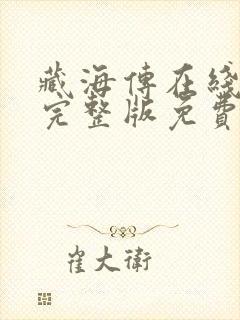 藏海傳在綫
完整版免費
崔大衛